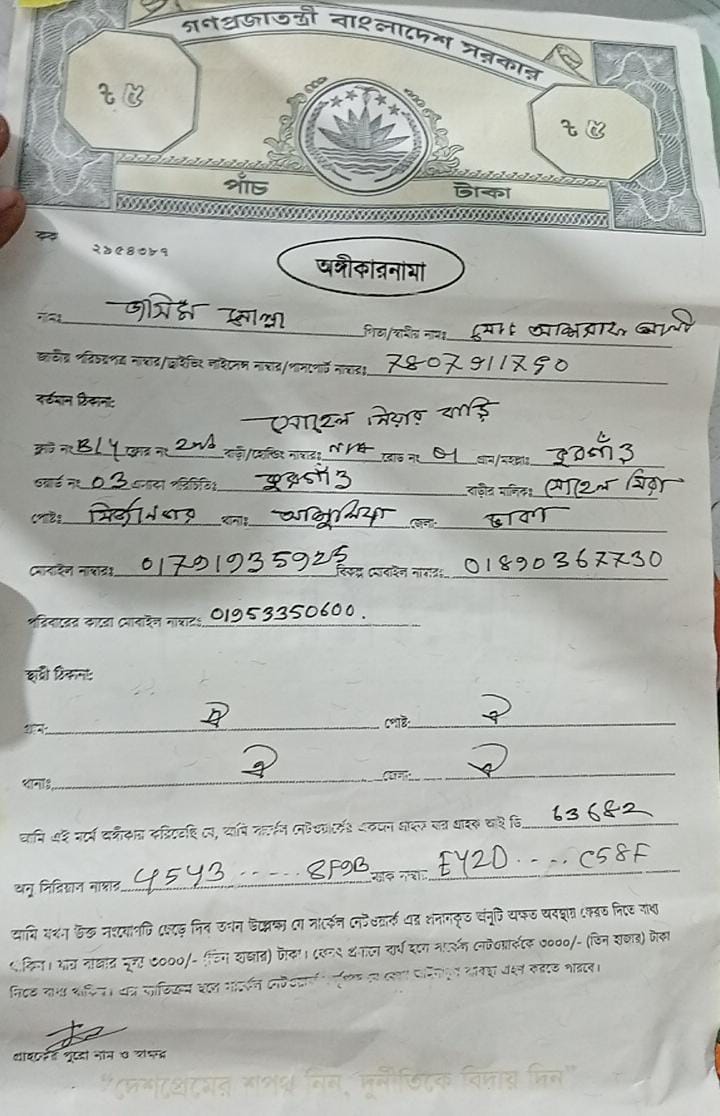 গণপ্রজাতন্ত্রী বাংলাদেশ সরকার
৳ ৫ ৳ ৫
পাঁচ টাকা
কক ২৯৫৪০৮৭
অঙ্গীকারনামা
নামঃ জসিম মোল্লা পিতা/স্বামীর নামঃ মোঃ আলী
জাতীয় পরিচয়পত্র নাম্বার/ড্রাইভিং লাইসেন্স নাম্বার/পাসপোর্ট নাম্বারঃ 7807911790
বর্তমান ঠিকানা: সোহেল মিয়ার বাড়ি
ফ্লাট নং B/4 ফ্লোর নং 2nd বাড়ী/হোল্ডিং নাম্বারঃ N/A রোড নং গ্রাম/মহল্লাঃ কুরগাঁও
ওয়ার্ড নং 03 এলাকা পরিচিতিঃ কুরগাঁও বাড়ীর মালিকঃ সোহেল মিয়া
পোষ্টঃ থানাঃ আশুলিয়া জেলা: ঢাকা
মোবাইল নাম্বারঃ 01791935925 বিকল্প মোবাইল নাম্বারঃ 01890367730
পরিবারের কারো মোবাইল নাম্বারঃ 01953350600.
স্থায়ী ঠিকানা:
গ্রাম: ঐ পোষ্ট: ঐ
থানাঃ ঐ জেলা: ঐ
আমি এই মর্মে অঙ্গীকার করিতেছি যে, আমি সার্কেল নেটওয়ার্কের একজন গ্রাহক যার গ্রাহক আই ডি 63682
অনু সিরিয়াল নাম্বার 4543.....8F9B ম্যাক নং: EY2D....C58F
আমি যখন উক্ত সংযোগটি ছেড়ে দিব তখন উল্লেক্ষ্য যে সার্কেল নেটওয়ার্ক এর অনুটি অক্ষত অবস্থায় ফেরত দিতে বাধ্য
থাকিব। যার বাজার মূল্য ৩০০০/- (তিন হাজার) টাকা। ফেরত প্রদানে ব্যর্থ হলে সার্কেল নেটওয়ার্ককে ৩০০০/- (তিন হাজার) টাকা
দিতে বাধ্য থাকিব। এর ব্যতিক্রম হলে সার্কেল নেটওয়ার্ক ব্যবস্থা গ্রহন করতে পারবে।
গ্রাহকের পুরো নাম ও স্বাক্ষর
"দেশপ্রেমের শপথ নিন, দুর্নীতিকে বিদায় দিন"